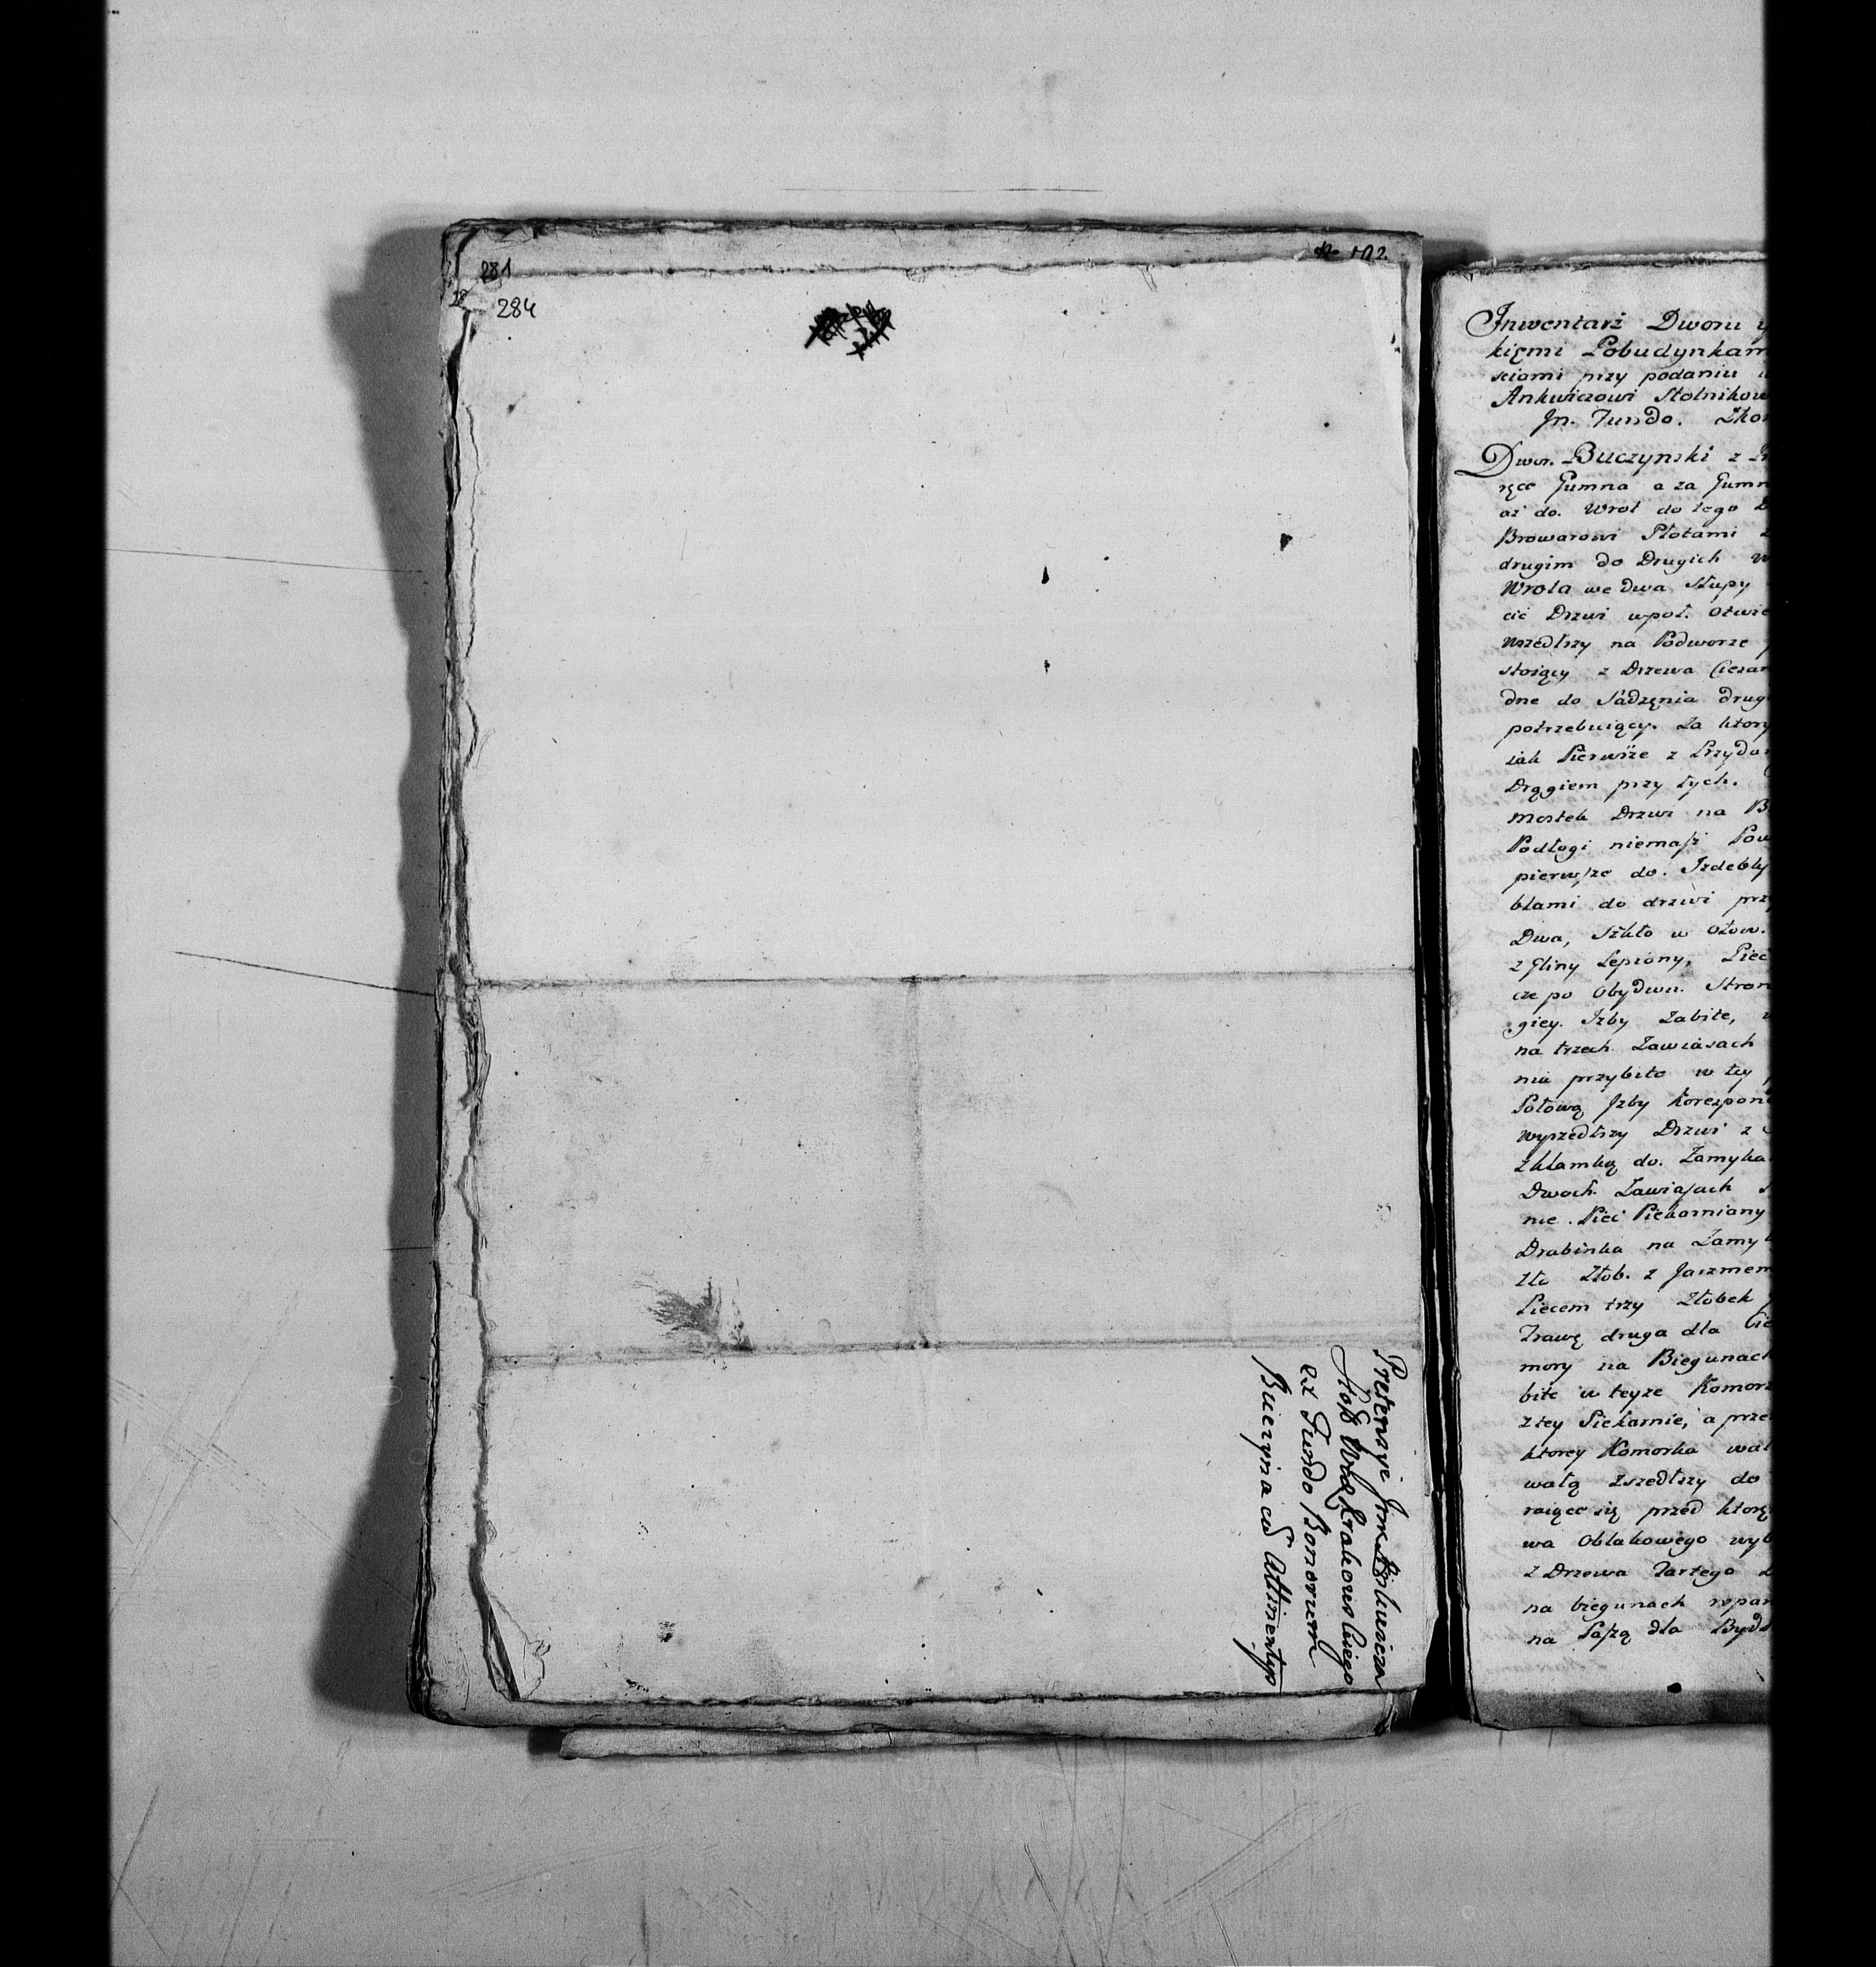 281
284
Pretensye Jmci Ankwicza
Stol: Woie: Krakowskiego
ex Fundo Bonorum
Buczyna cũ Attinentys
Inwentarz Dworu
kięmi Pobudynkam
sciami przy podaniu
Ankwiczowi Stolnikow
In. Fundo.
Dwor. Buczynski z
ręce Gumna a za Gumn
aż do. Wrot do tego
Browarowi Płotami
drugim do Drugich
Wrota we Dwa Słupy
cić Drzwi wpoł. otwie
wszedłszy na Podworze
stoiący z Drzewa Ciesan
dne do Sádzęnia drug
potrzebuiący. Za ktory
iak Pierwsze z Przyda
Drągiem przy tych.
Mostek Drzwi na
Podłogi niemasz Pow
pierwsze do. Izdebky
blami do drzwi prz
Dwa, Szkło w ołow.
z Gliny Lepiony, Piec
cze po Obydwu. Stron
giey. Izby Zabite,
na trzech Zawiasach
nia przybite w tey
Połową Izby Korespon
wyszedłszy Drzwi z
z klamką do. Zamyka
Dwoch. Zawiasach
nie. Piec Piekarniany
Drabinka na Zamy
Złob. z Jarzmem
Piecem trzy Złobek
Trawę druga dla
mory na Biegunach
bite w teyże Komorz
z tey Piekarnie, a prze
ktorey Komorka wal
wałą zszedłszy do
raiąec się przed ktorą
wa Oblakowego wyb
z Drzewa Tartego
na biegunach wpar
na Paszą dla Bydł